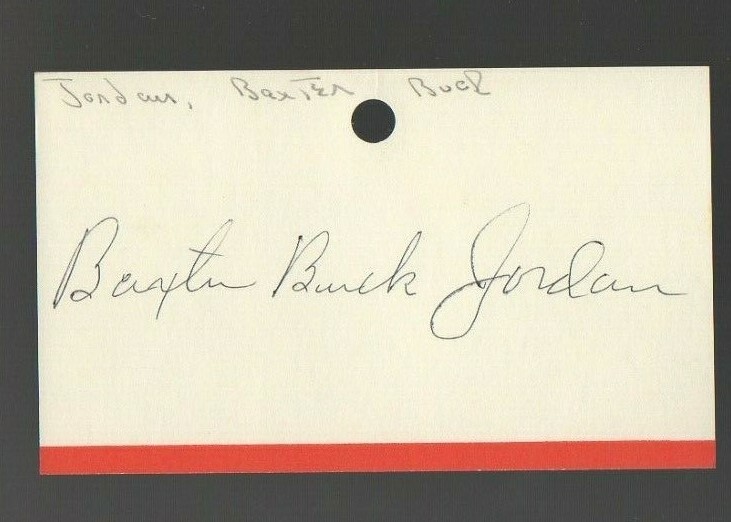 Jordan, Baxter Buck
Baxter Buck Jordan